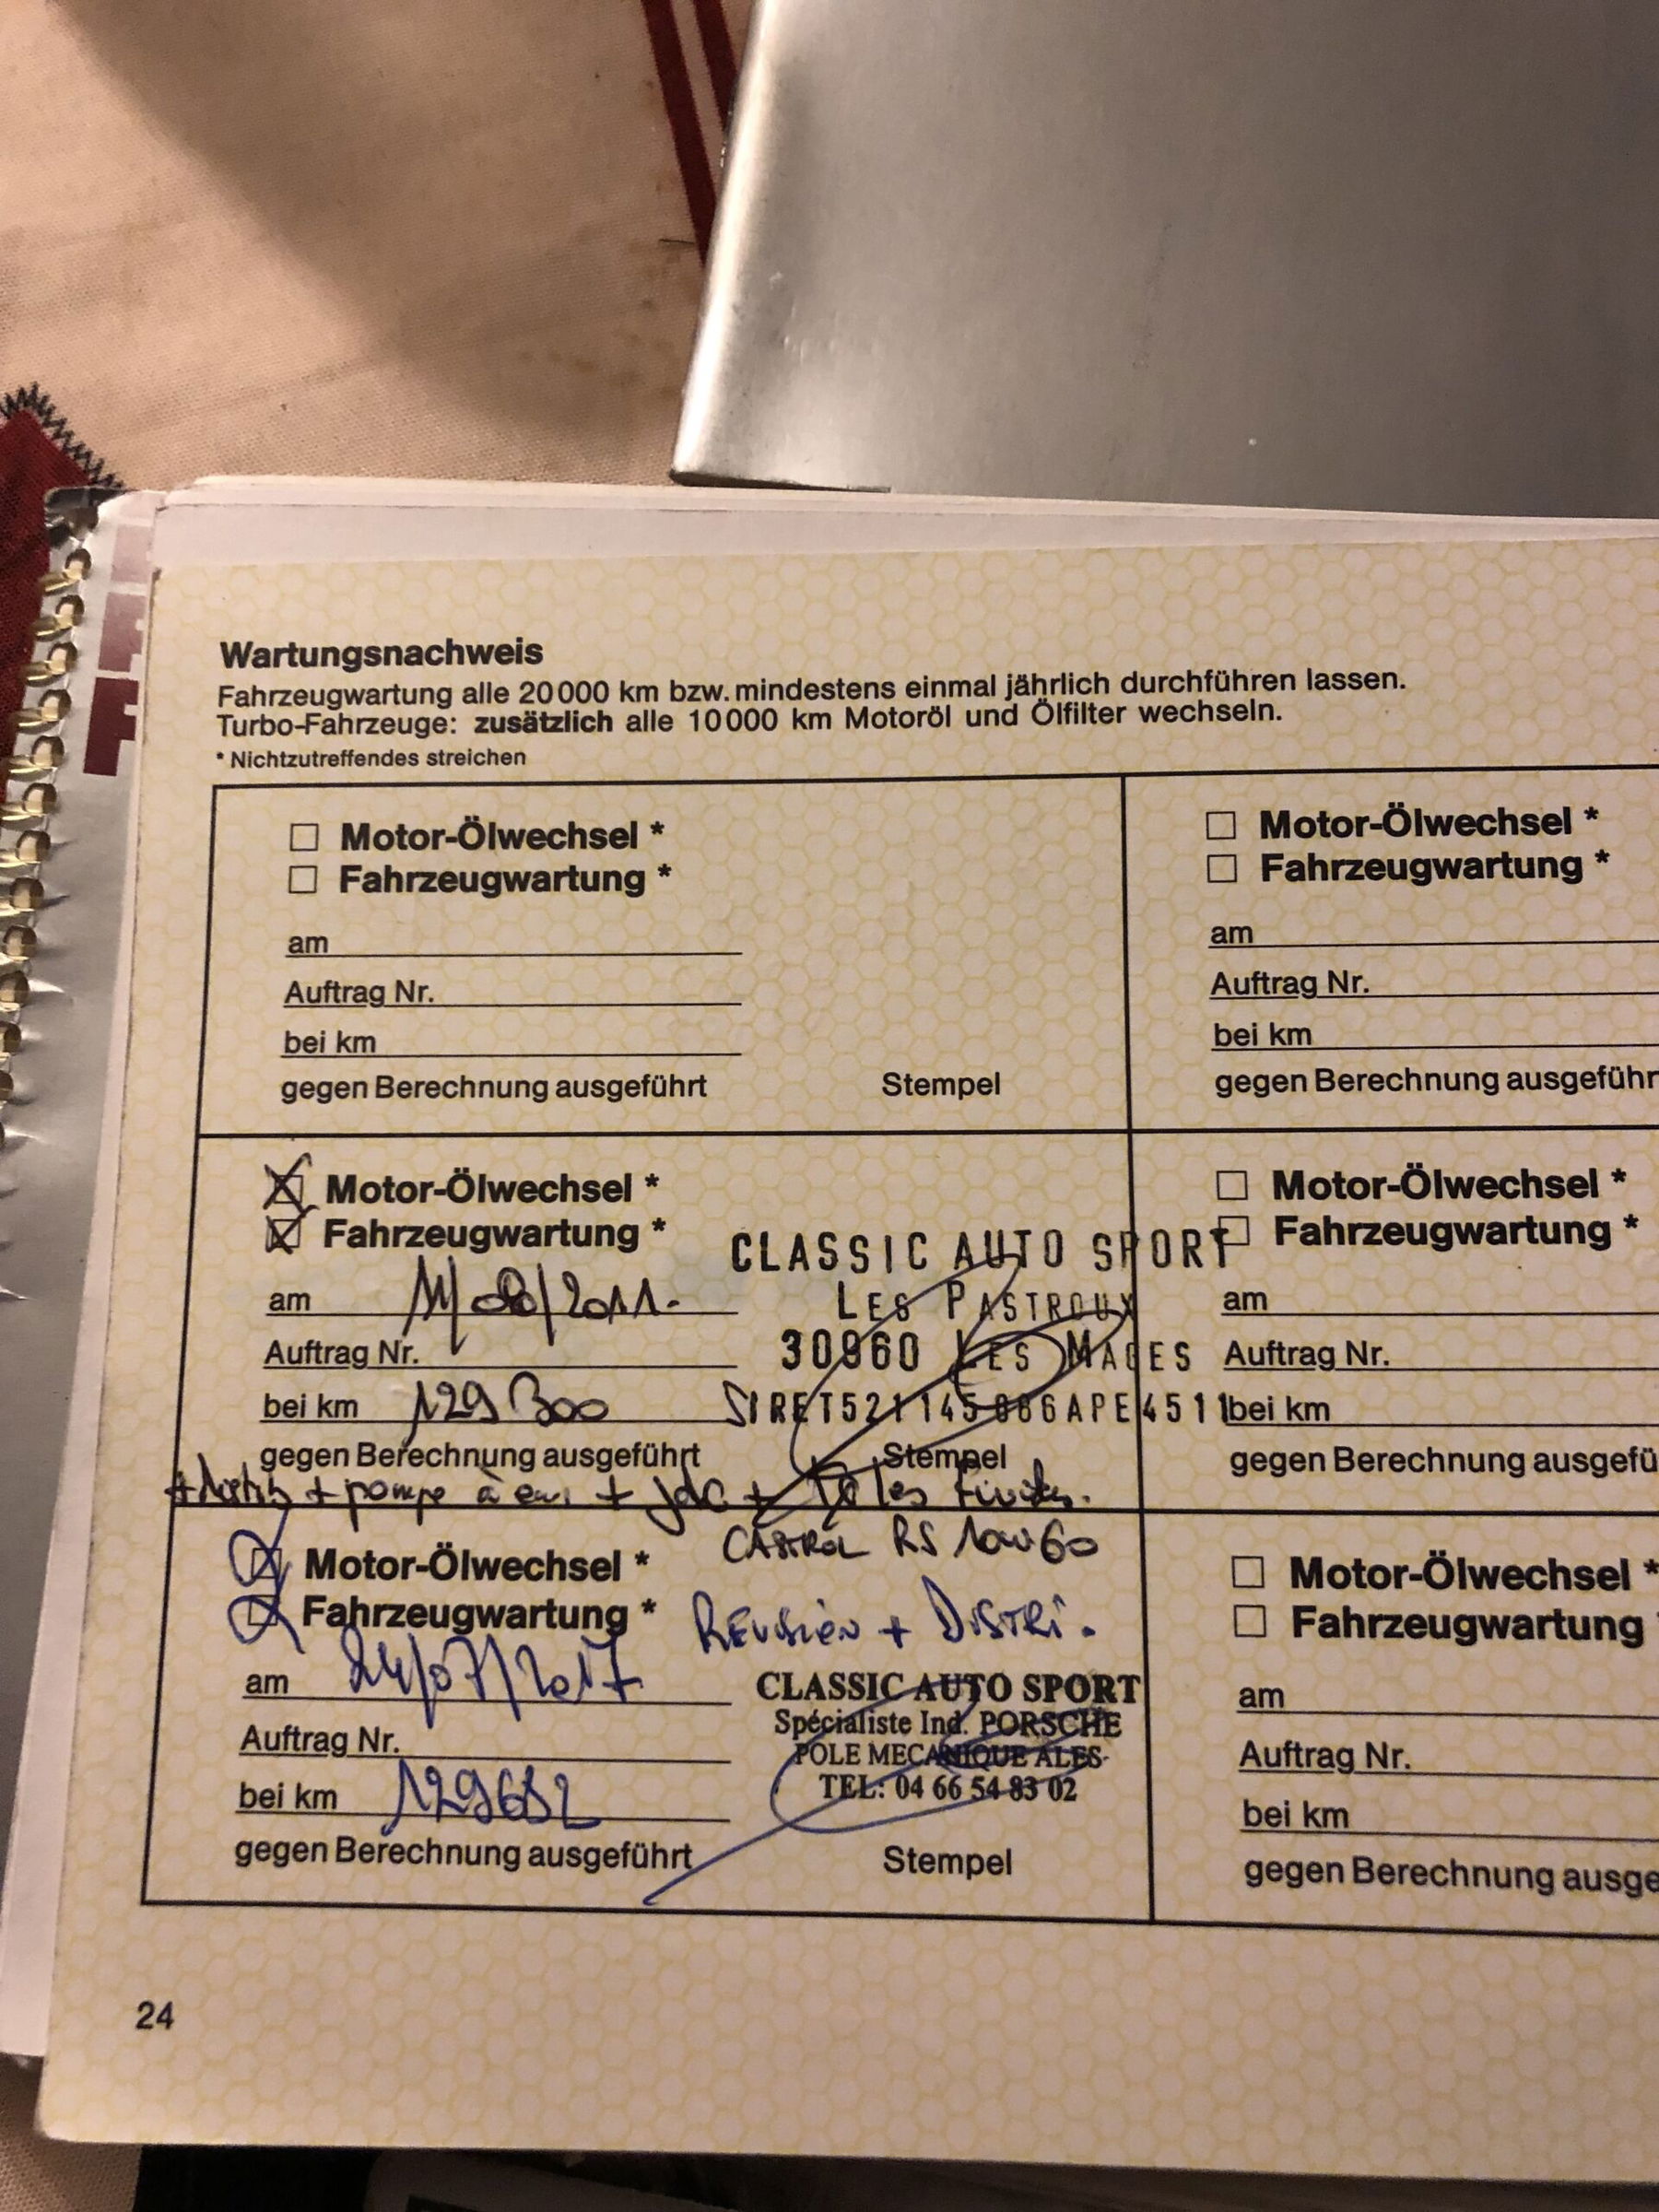 Wartungsnachweis
Fahrzeugwartung alle 20000 km bzw. mindestens einmal jährlich durchführen lassen.
Turbo-Fahrzeuge: zusätzlich alle 10000 km Motoröl und Ölfilter wechseln.
* Nichtzutreffendes streichen
Motor-Ölwechsel *
Fahrzeugwartung *
am
Auftrag Nr.
bei km
gegen Berechnung ausgeführt Stempel
Motor-Ölwechsel *
Fahrzeugwartung *
am
Auftrag Nr.
bei km
gegen Berechnung ausgeführ
Motor-Ölwechsel *
Fahrzeugwartung *
CLASSIC AUTO SPORT
am /2011.
LES PASTROUX
Auftrag Nr.
30960 LES MAGES
bei km 129 300
SIRET521145 APE4511
gegen Berechnung ausgeführt Stempel
+ pompe à eau + + Tôles
Motor-Ölwechsel *
Fahrzeugwartung *
am
Auftrag Nr.
bei km
gegen Berechnung ausgefü
CASTROL RS 10W60
Motor-Ölwechsel *
Fahrzeugwartung *
REVISION + DISTRI.
am 24/07/2017
CLASSIC AUTO SPORT
Spécialiste Ind. PORSCHE
POLE MECANIQUE ALES
TEL: 04 66 54 83 02
Auftrag Nr.
bei km 129652
gegen Berechnung ausgeführt Stempel
Motor-Ölwechsel *
Fahrzeugwartung
am
Auftrag Nr.
bei km
gegen Berechnung ausge
24